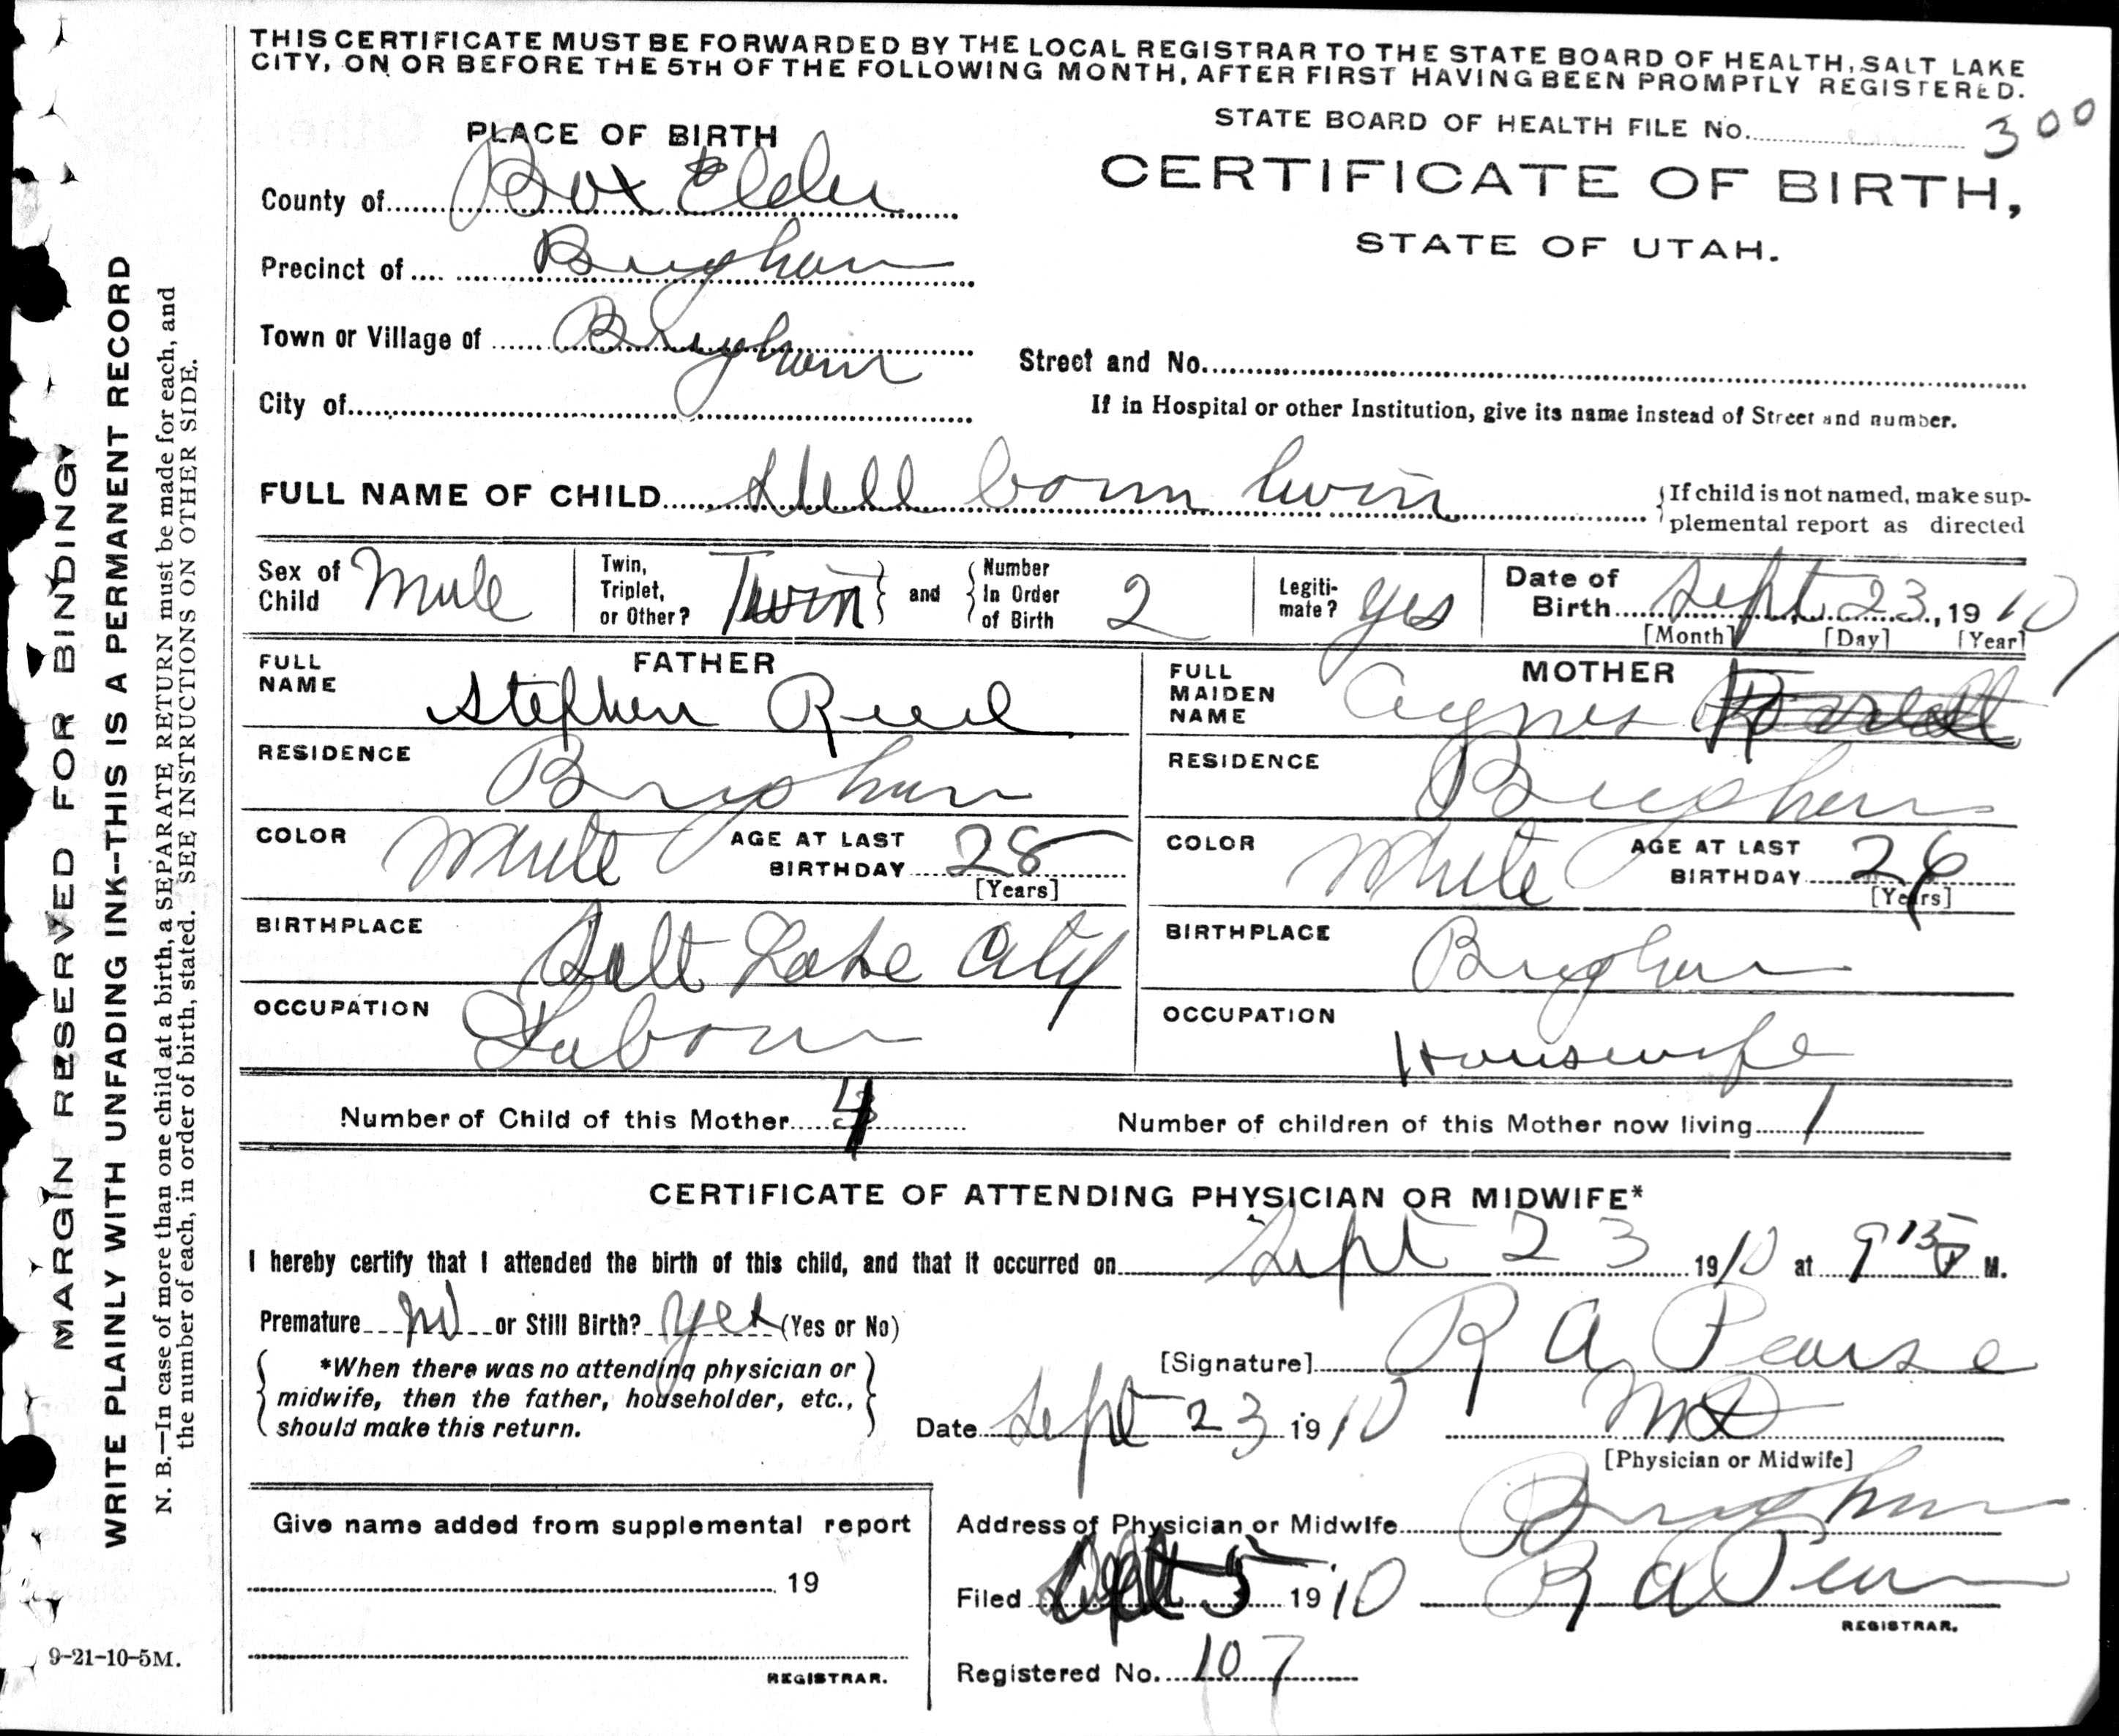 THIS CERTIFICATE MUST BE FORWARDED BY THE LOCAL REGISTRAR TO THE STATE BOARD OF HEALTH, SALT LAKE
CITY, ON OR BEFORE THE 5TH OF THE FOLLOWING MONTH, AFTER FIRST HAVING BEEN PROMPTLY REGISTERED.
STATE BOARD OF HEALTH FILE No. 300
PLACE OF BIRTH
CERTIFICATE OF BIRTH,
STATE OF UTAH.
County of Box Elder
Precinct of Brigham
Town or Village of Brigham
Street and No.
City of
If in Hospital or other Institution, give its name instead of Street and number.
FULL NAME OF CHILD Still born twin
If child is not named, make sup-
plemental report as directed
Sex of Child Male
Twin, Triplet, or Other? Twin and Number In Order of Birth 2
Legiti-mate? yes
Date of Birth Sept 23, 1910
[Month] [Day] [Year]
FATHER
FULL NAME Stephen Reel
RESIDENCE Brigham
COLOR White AGE AT LAST BIRTHDAY 28
[Years]
BIRTHPLACE Salt Lake City
OCCUPATION Labour
MOTHER
FULL MAIDEN NAME Agnes
RESIDENCE Brigham
COLOR White AGE AT LAST BIRTHDAY 26
[Years]
BIRTHPLACE Brigham
OCCUPATION Housewife
Number of Child of this Mother 4
Number of children of this Mother now living 1
CERTIFICATE OF ATTENDING PHYSICIAN OR MIDWIFE*
I hereby certify that I attended the birth of this child, and that it occurred on Sept 23 1910 at 9 15 P M.
Premature No or Still Birth? yes (Yes or No)
*When there was no attending physician or
midwife, then the father, householder, etc.,
should make this return.
[Signature] R A Pearse
Date Sept 23 1910 MD
[Physician or Midwife]
Give name added from supplemental report
19
REGISTRAR.
Address of Physician or Midwife Brigham
Filed 5 1910 R A Pearse
REGISTRAR.
Registered No. 107
MARGIN RESERVED FOR BINDING
WRITE PLAINLY WITH UNFADING INK--THIS IS A PERMANENT RECORD
N. B.—In case of more than one child at a birth, a SEPARATE RETURN must be made for each, and
the number of each, in order of birth, stated. SEE INSTRUCTIONS ON OTHER SIDE.
9-21-10-5M.